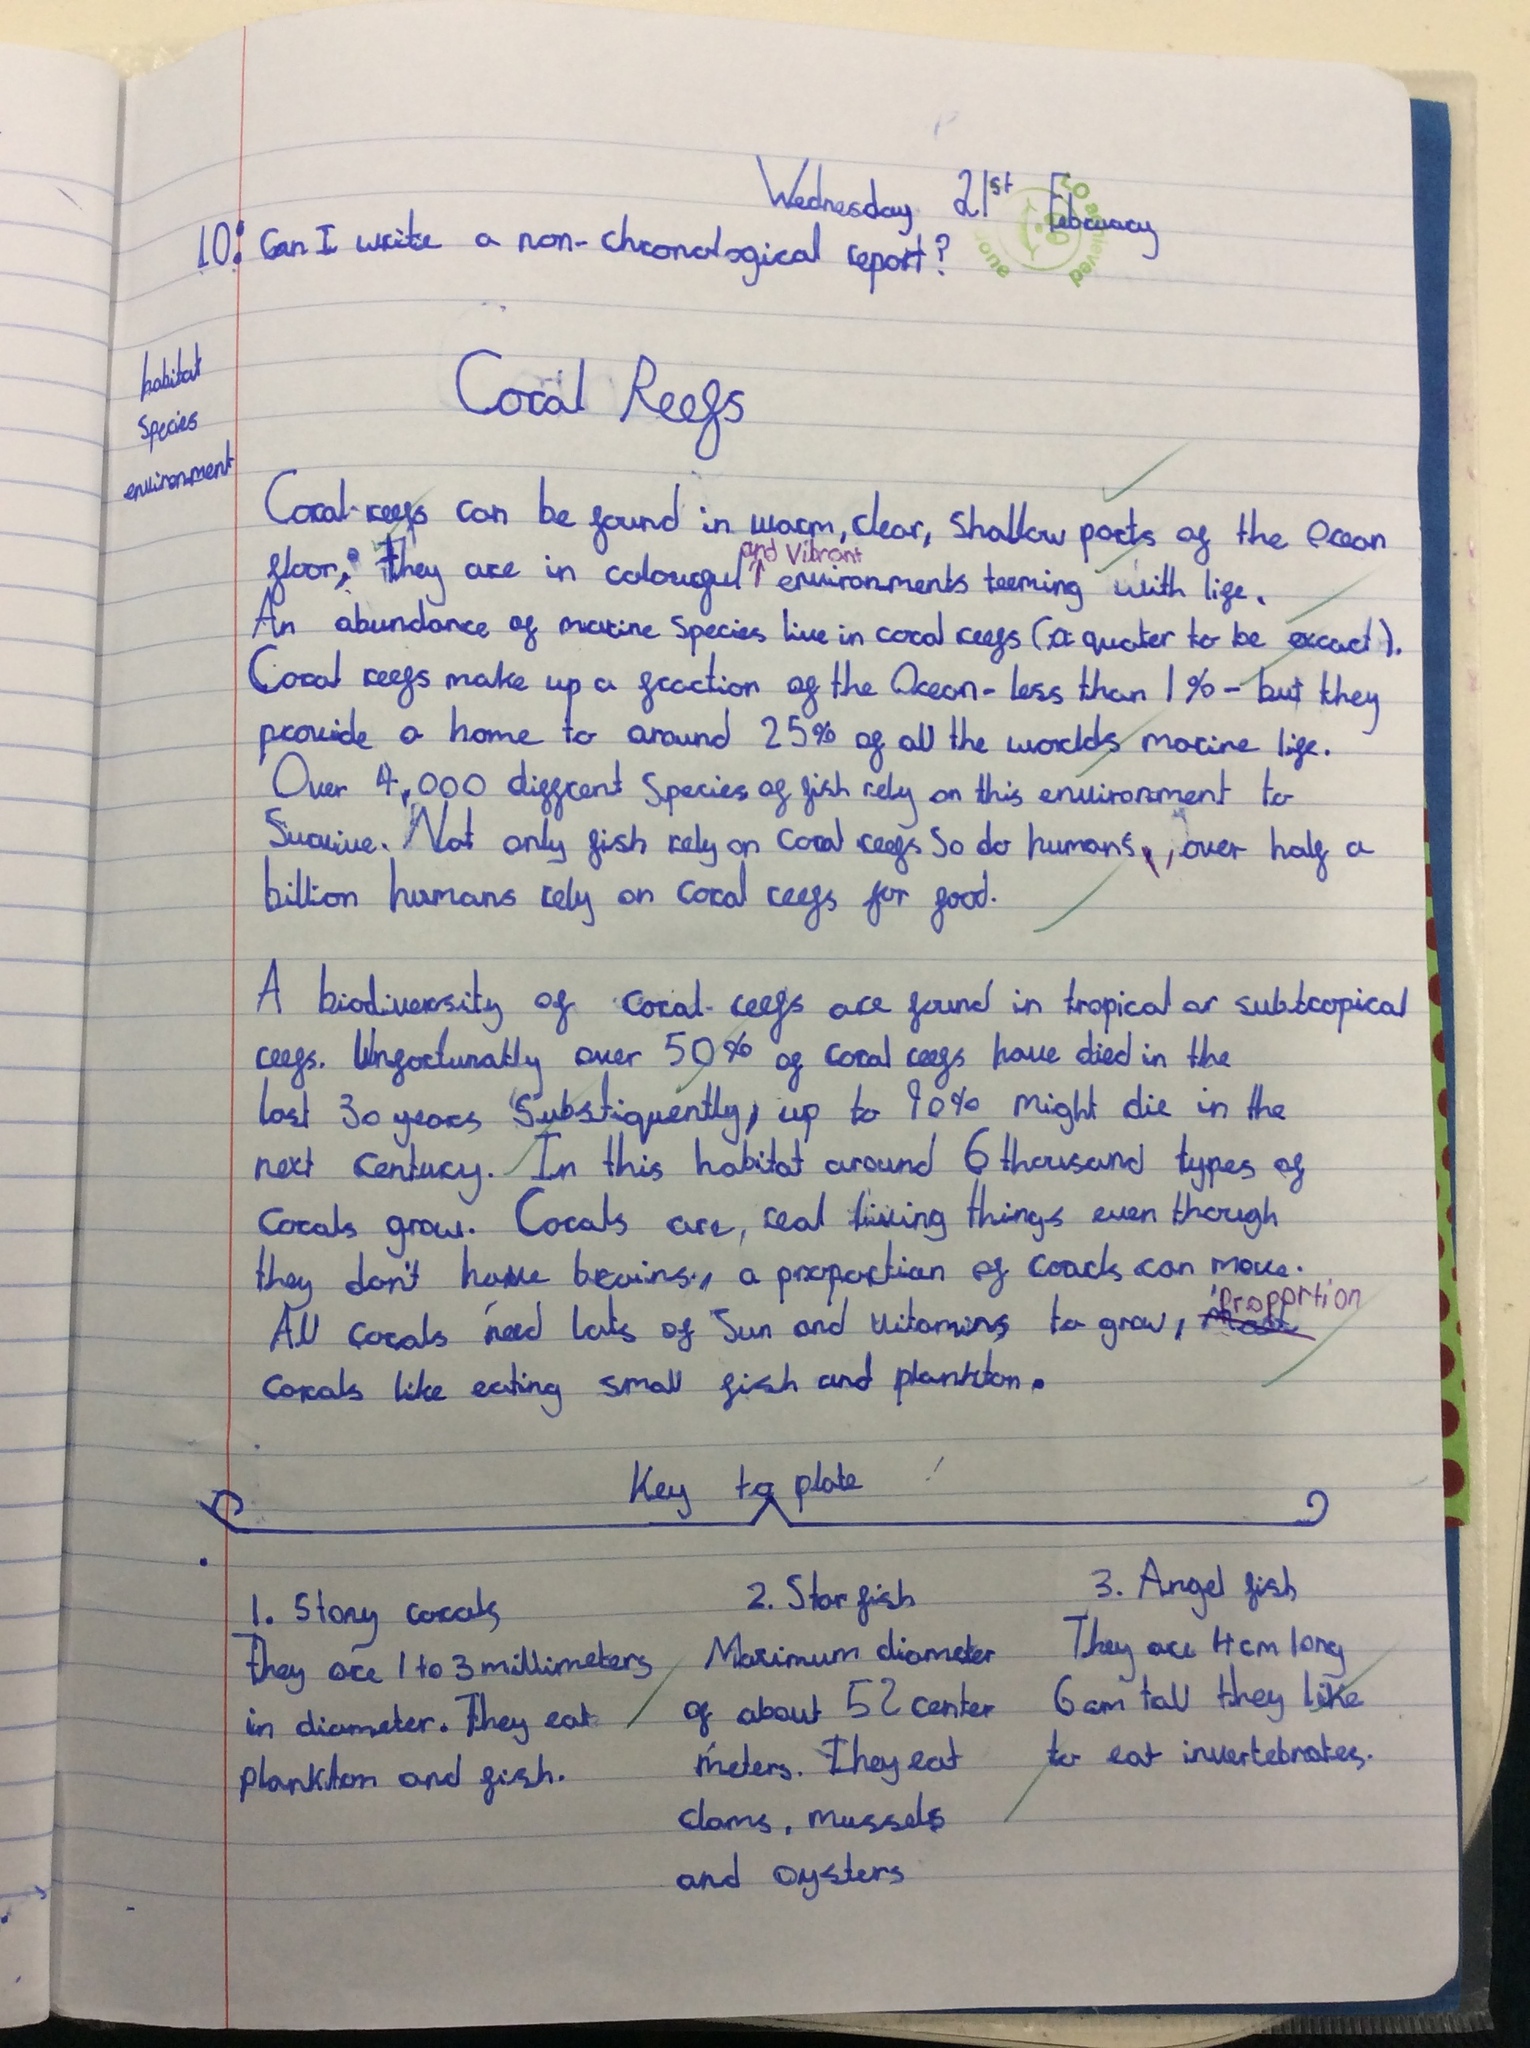 Wednesday 21st February
LO: Can I write a non-chronological report?
LO achieved
habitat
species
environment
Coral Reefs
Coral reefs can be found in warm, clear, shallow parts of the Ocean
and vibrant
floor. They are in colourful environments teeming with life.
An abundance of marine species live in coral reefs (a quater to be excact).
Coral reefs make up a fraction of the Ocean - less than 1% - but they
provide a home to around 25% of all the worlds marine life.
Over 4,000 diffrent species of fish rely on this environment to
Survive. Not only fish rely on coral reefs so do humans, over half a
billion humans rely on coral reefs for food.
A biodiversity of coral reefs are found in tropical or subtropical
reefs. Unfortunatly over 50% of coral reefs have died in the
last 30 years Substiquently, up to 90% might die in the
next century. In this habitat around 6 thousand types of
corals grow. Corals are, real living things even though
they don't have brains, a proportion of corals can move.
proportion
All corals need lots of Sun and vitamins to grow,
corals like eating small fish and plankton.
Key to plate
1. Stony corals
They are 1 to 3 millimeters
in diameter. They eat
plankton and fish.
2. Star fish
Maximum diameter
of about 52 center
meters. They eat
clams, mussels
and oysters
3. Angel fish
They are 4cm long
6cm tall they like
to eat invertebrates.